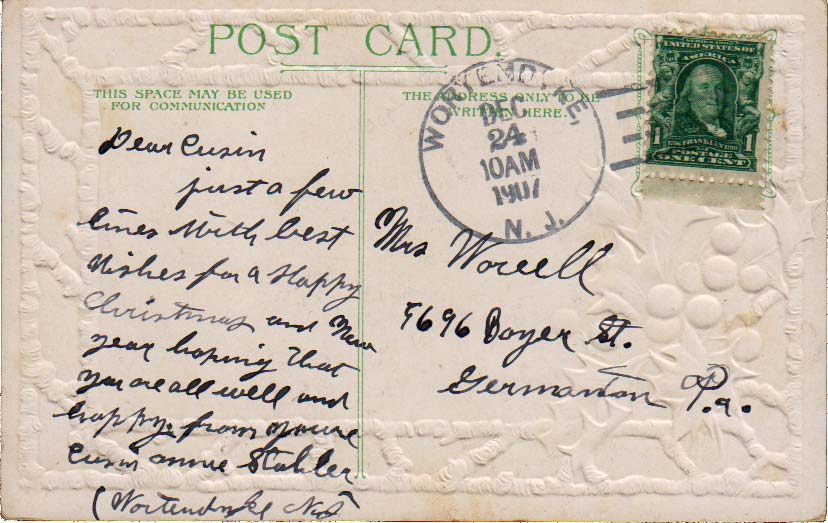 POST CARD.
THIS SPACE MAY BE USED
FOR COMMUNICATION
THE ADDRESS ONLY TO BE
WRITTEN HERE.
WORTENDYKE,
DEC
24
10AM
1907
N. J.
UNITED STATES OF
AMERICA
FRANKLIN
1 POSTAGE 1
ONE CENT
Dear Cusin
just a few
lines With best
Wishes for a Happy
Christmas and New
year hoping that
you are all well and
happy. from youre
Cusin annie Stahler
(Wortendyke
Mrs Worell
5696 Boyer St.
Germanton Pa.